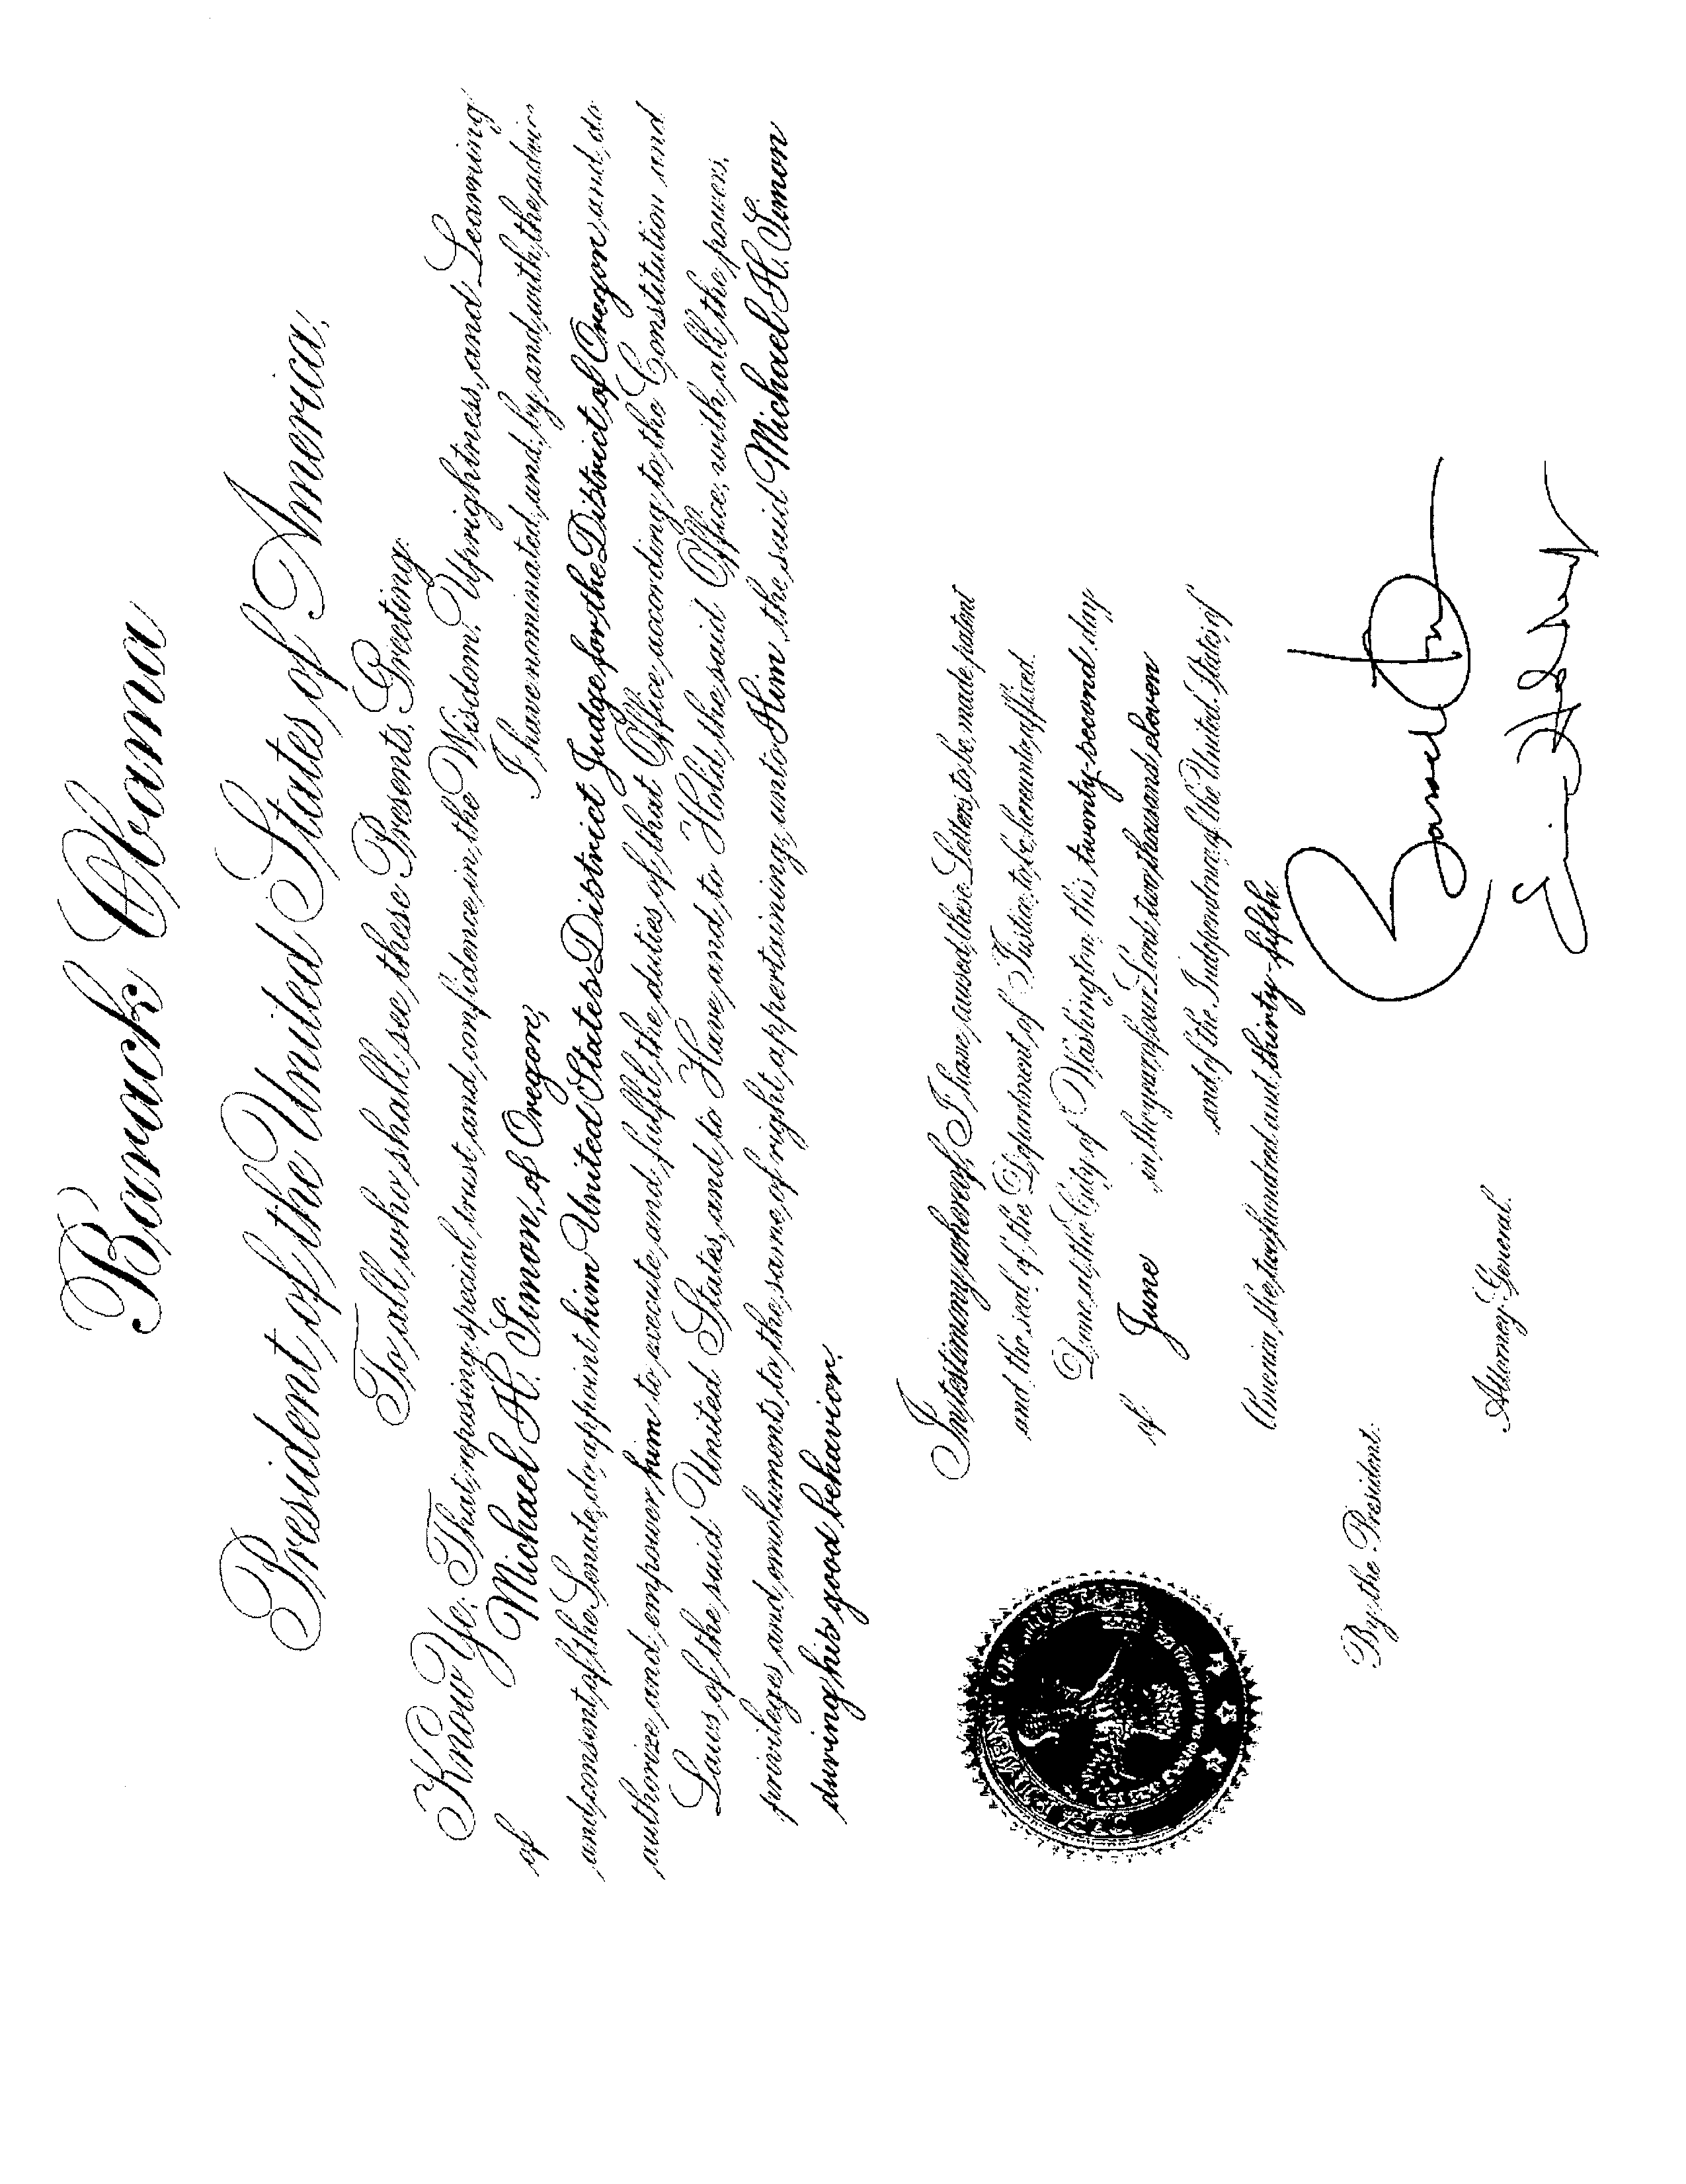 Barack Obama
President of the United States of America,
To all who shall see these Presents, Greeting:
Know Ye; That reposing special trust and confidence in the Wisdom, Uprightness, and Learning
of Michael H. Simon, of Oregon, I have nominated, and, by and with the advice
and consent of the Senate, do appoint him United States District Judge for the District of Oregon and do
authorize and empower him to execute and fulfil the duties of that Office according to the Constitution and
Laws of the said United States, and to Have and to Hold the said Office, with all the powers,
privileges and emoluments to the same of right appertaining, unto Him the said Michael H. Simon
during his good behavior.
In testimony whereof, I have caused these Letters to be made patent
and the seal of the Department of Justice to be hereunto affixed.
Done at the City of Washington this twenty-second day
of June in the year of our Lord two thousand eleven
and of the Independence of the United States of
America, the two hundred and thirty-fifth
By the President:
Attorney General.